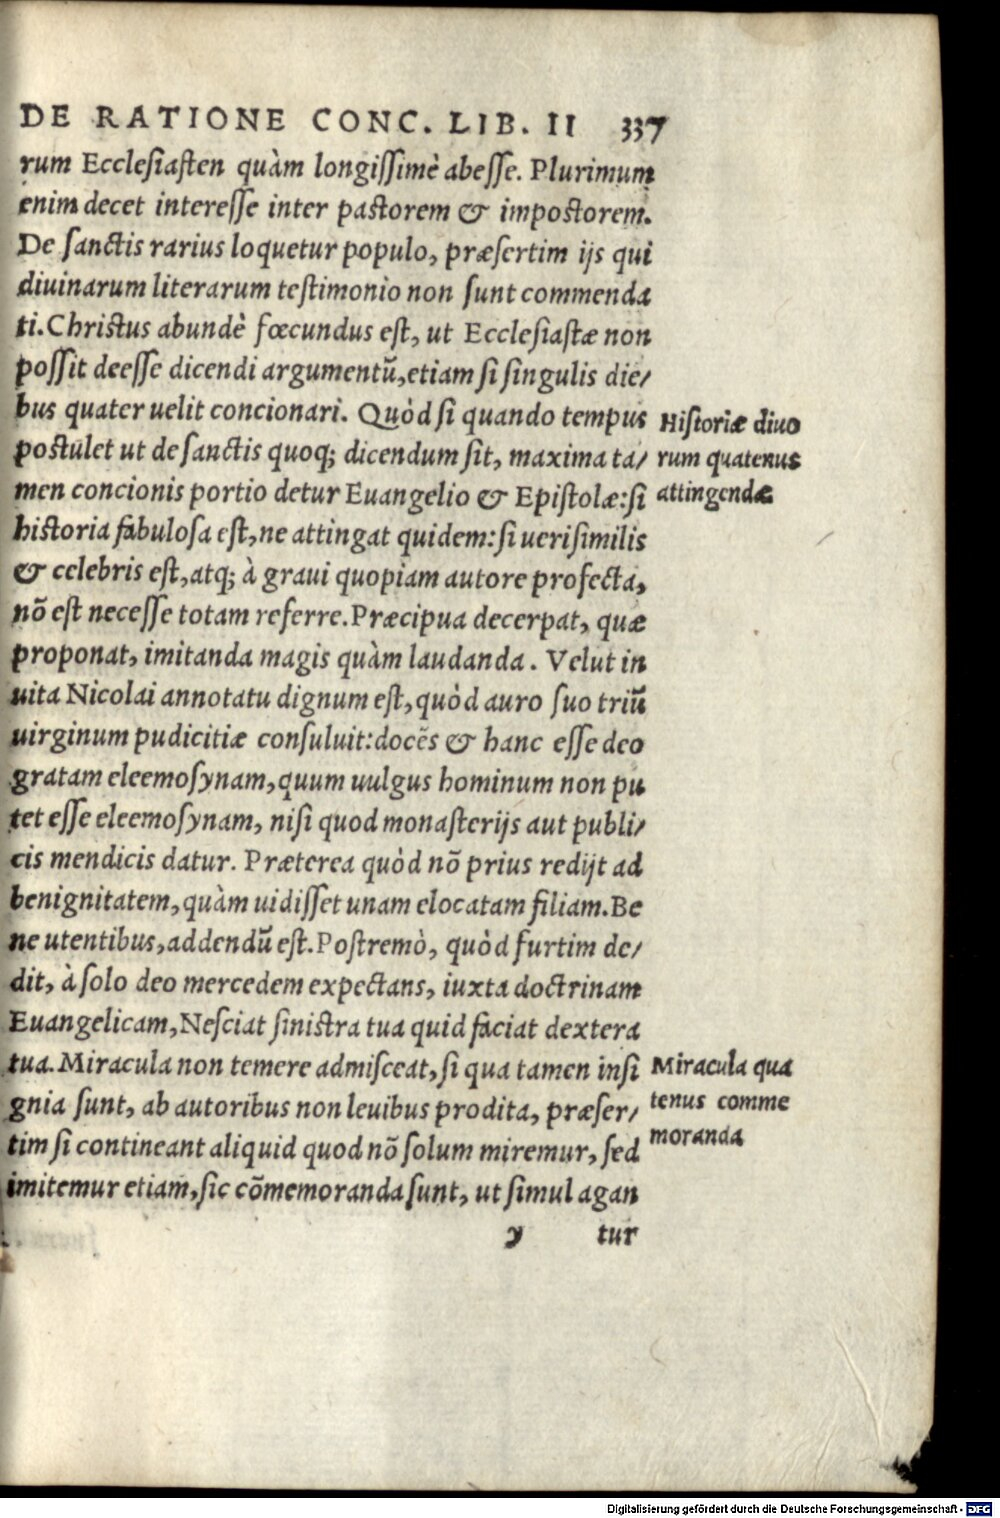 DE RATIONE CONC. LIB. II 337
rum Ecclesiasten quàm longissimè abesse. Plurimum
enim decet interesse inter pastorem & impostorem.
De sanctis rarius loquetur populo, præsertim ijs qui
diuinarum literarum testimonio non sunt commenda
ti. Christus abundè fœcundus est, ut Ecclesiastæ non
possit deesse dicendi argumentũ, etiam si singulis die/
bus quater uelit concionari. Quòd si quando tempus
postulet ut de sanctis quoq; dicendum sit, maxima ta/
men concionis portio detur Euangelio & Epistolæ: si
historia fabulosa est, ne attingat quidem: si uerisimilis
& celebris est, atq; à graui quopiam autore profecta,
nõ est necesse totam referre. Præcipua decerpat, quæ
proponat, imitanda magis quàm laudanda. Velut in
uita Nicolai annotatu dignum est, quòd auro suo triũ
uirginum pudicitiæ consuluit: docẽs & hanc esse deo
gratam eleemosynam, quum uulgus hominum non pu
tet esse eleemosynam, nisi quod monasterijs aut publi/
cis mendicis datur. Præterea quòd nõ prius redijt ad
benignitatem, quàm uidisset unam elocatam filiam. Be
ne utentibus, addendũ est. Postremò, quòd furtim de/
dit, à solo deo mercedem expectans, iuxta doctrinam
Euangelicam, Nesciat sinistra tua quid faciat dextera
tua. Miracula non temere admisceat, si qua tamen insi
gnia sunt, ab autoribus non leuibus prodita, præser/
tim si contineant aliquid quod nõ solum miremur, sed
imitemur etiam, sic cõmemoranda sunt, ut simul agan
y tur
Historiæ diuo
rum quatenus
attingendæ
Miracula qua
tenus comme
moranda
Digitalisierung gefördert durch die Deutsche Forschungsgemeinschaft - DFG